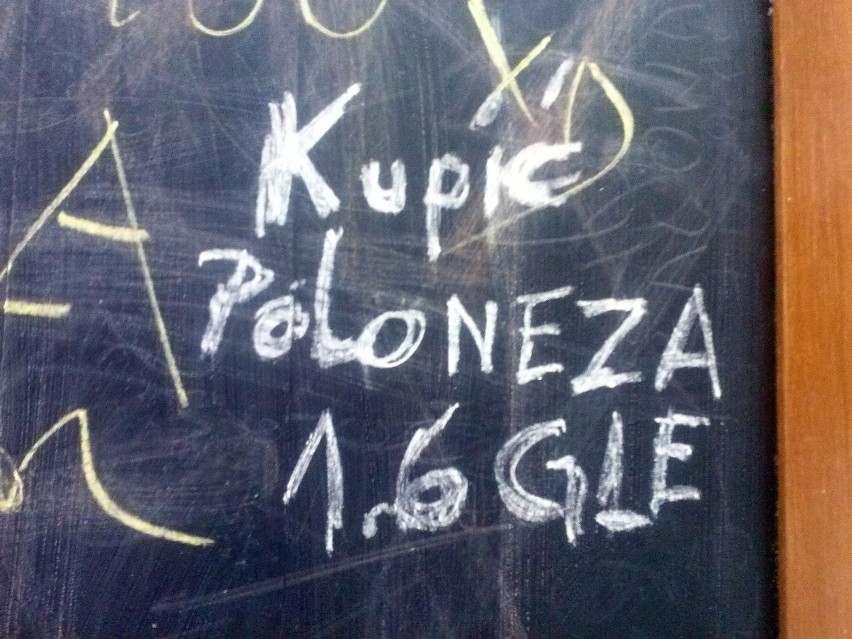 Kupić
PoLoNEZA
1.6 GLE